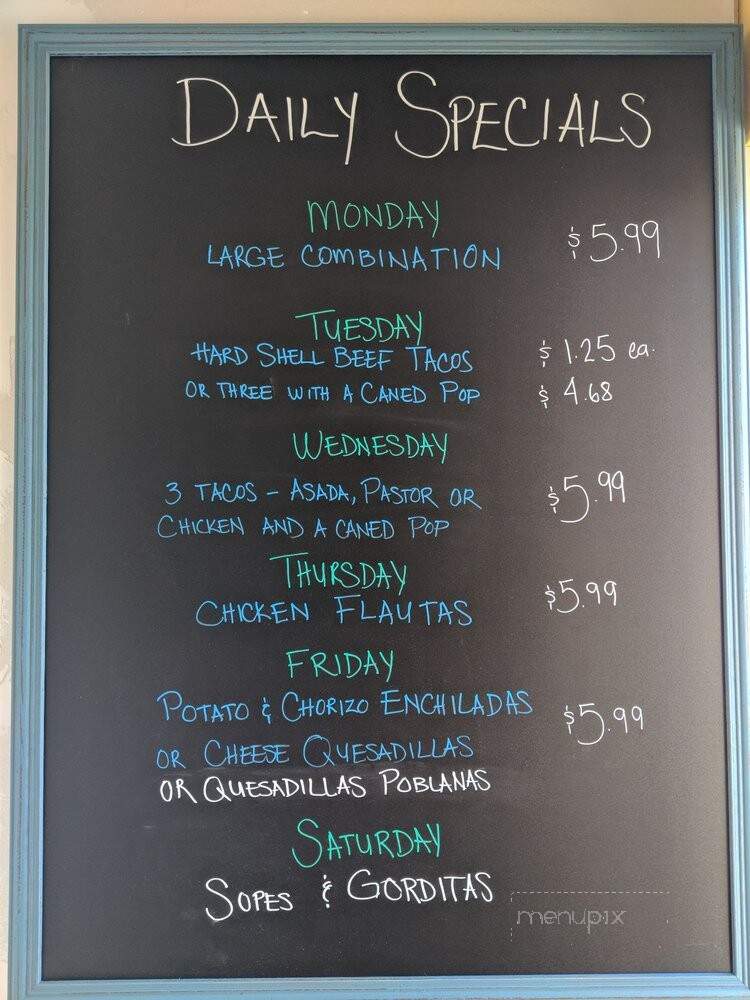 DAILY SPECIALS
MONDAY
LARGE COMBINATION $5.99
TUESDAY
HARD SHELL BEEF TACOS $1.25 ea.
OR THREE WITH A CANED POP $4.68
WEDNESDAY
3 TACOS - ASADA, PASTOR OR $5.99
CHICKEN AND A CANED POP
THURSDAY
CHICKEN FLAUTAS $5.99
FRIDAY
POTATO & CHORIZO ENCHILADAS $5.99
OR CHEESE QUESADILLAS
OR QUESADILLAS POBLANAS
SATURDAY
SOPES & GORDITAS
menupix